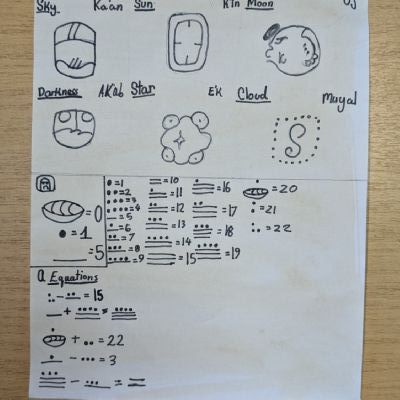 Sky Ka'an Sun K'in Moon Uj
Darkness AK'ab Star EK Cloud Muyal
S
=0
=1
=5
=1
=2
=3
=4
=5
=6
=7
=8
=9
=10
=11
=12
=13
=14
=15
=16
=17
=18
=19
=20
=21
=22
Q Equations
- = 15
+ =
+ = 22
- = 3
- =